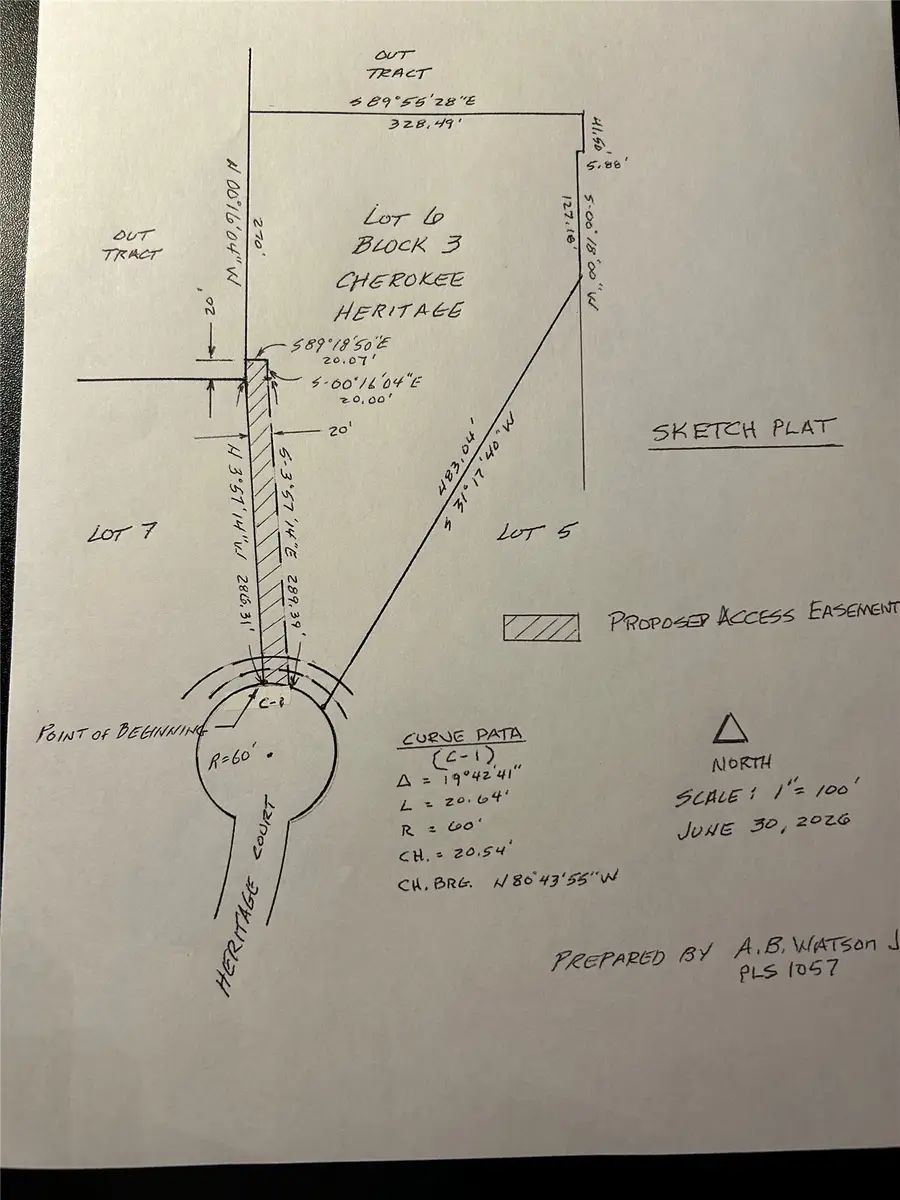 OUT
TRACT
S 89°55'28"E
328.49'
41.50'
5.88'
N 00°16'04"W
270'
127.18'
S-00°18'00"W
OUT
TRACT
LOT 6
BLOCK 3
CHEROKEE
HERITAGE
20'
S89°18'50"E
20.07'
S-00°16'04"E
20.00'
20'
SKETCH PLAT
483.04'
S 31°17'40"W
N 3°57'14"W 286.31'
S-3°57'14"E 289.39'
LOT 7
LOT 5
PROPOSED ACCESS EASEMENT
C-1
POINT OF BEGINNING
R=60'
HERITAGE COURT
CURVE DATA
(C-1)
Δ = 19°42'41"
L = 20.64'
R = 60'
CH. = 20.54'
CH. BRG. N80°43'55"W
NORTH
SCALE: 1"= 100'
JUNE 30, 2026
PREPARED BY A.B. WATSON J
PLS 1057